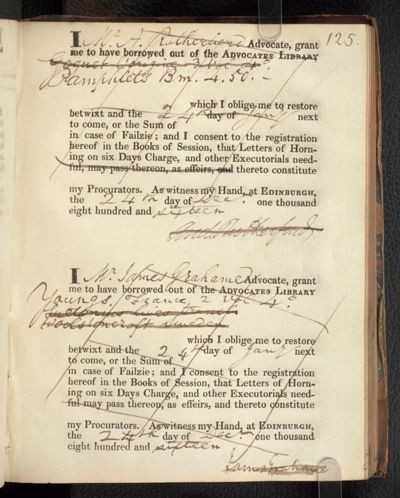 125.
I Mr. A. Rutherford Advocate, grant
me to have borrowed out of the ADVOCATES LIBRARY
Pamphlets Bm. 4.50.
which I oblige me to restore
betwixt and the 24 day of Jany next
to come, or the Sum of
in case of Failzie; and I consent to the registration
hereof in the Books of Session, that Letters of Horn-
ing on six Days Charge, and other Executorials need-
ful, may pass thereon, as effeirs, and thereto constitute
my Procurators. As witness my Hand, at EDINBURGH,
the 24th day of Decr. one thousand
eight hundred and sixteen
And Rutherford
I Mr. James Grahame Advocate, grant
me to have borrowed out of the ADVOCATES LIBRARY
Youngs France 2 vol 4o
which I oblige me to restore
betwixt and the 24 day of Jany next
to come, or the Sum of
in case of Failzie; and I consent to the registration
hereof in the Books of Session, that Letters of Horn-
ing on six Days Charge, and other Executorials need-
ful may pass thereon, as effeirs, and thereto constitute
my Procurators. As witness my Hand, at EDINBURGH,
the 24th day of Decr. one thousand
eight hundred and sixteen
James Grahame